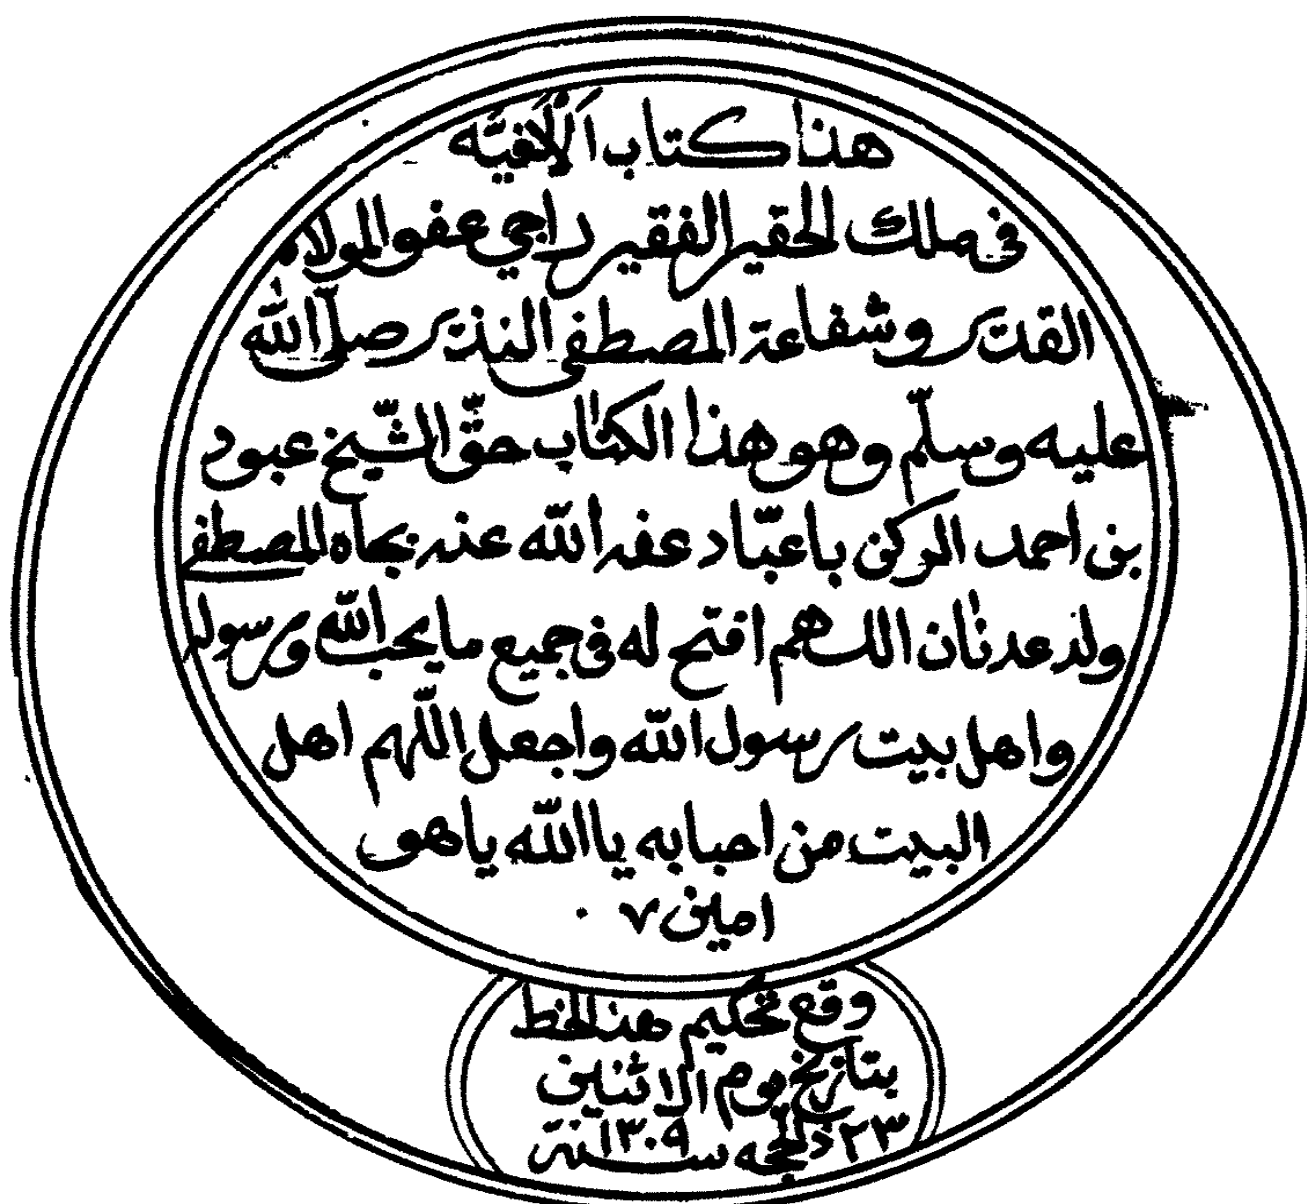 هذا كتاب اَلْألفيَّه
في ملك الحقير الفقير راجي عفو المولاه
القدير وشفاعة المصطفى النذير صلّى الله
عليه وسلّم وهو هذا الكتاب حقّ الشّيخ عبود
بن احمد الركن باعبّاد عفى الله عنه بجاه المصطفى
ولد عدنان اللهم افتح له في جميع ما يحب الله ورسوله
واهل بيت رسول الله واجعل اللّهم اهل
البيت من احبابه يا الله يا هو
امين ٧ ٠
وقع تحكيم هذا الخط
بتاريخ يوم الاثنين
٢٣ ذلحجه سنة ١٣٠٩